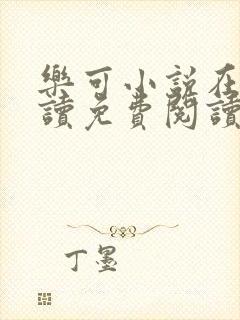 樂可小說在
讀免費閱讀
丁墨